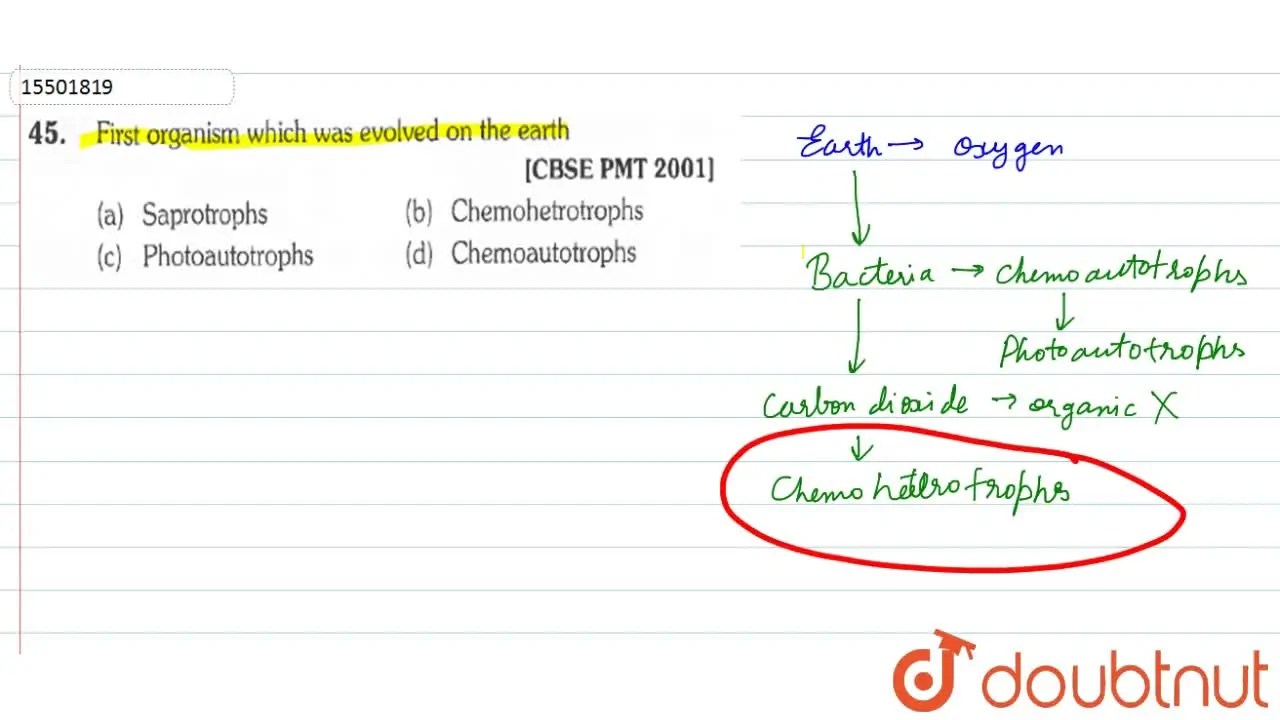 15501819
45. First organism which was evolved on the earth
[CBSE PMT 2001]
(a) Saprotrophs (b) Chemohetrotrophs
(c) Photoautotrophs (d) Chemoautotrophs
Earth → oxygen
Bacteria → Chemoautotrophs
Photoautotrophs
Carbon dioxide → organic X
Chemoheterotrophs
doubtnut